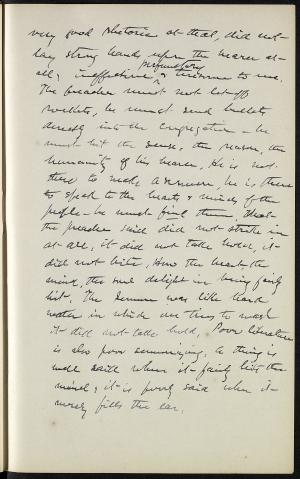 very good rhetoric at that, did not
lay strong hands upon the hearer at
perfunctory
all; ineffective, & tiresome to me.
The preacher must not let off
rockets, he must send bullets
directly into the congregation – he
must hit the sense, the reason, the
humanity of his hearer. He is not
there to make a sermon, he is there
to speak to the hearts & minds of the
people – he must find them. What
the preacher said did not strike in
at all; it did not take hold, it
did not bite. How the heart, the
mind, the soul delight in being fairly
hit. The sermon was like hard
water in which one tries to wash
it did not take hold. Poor literature
is also poor sermonizing. A thing is
well said when it fairly hits the
mind; it is poorly said when it
merely fills the ear.